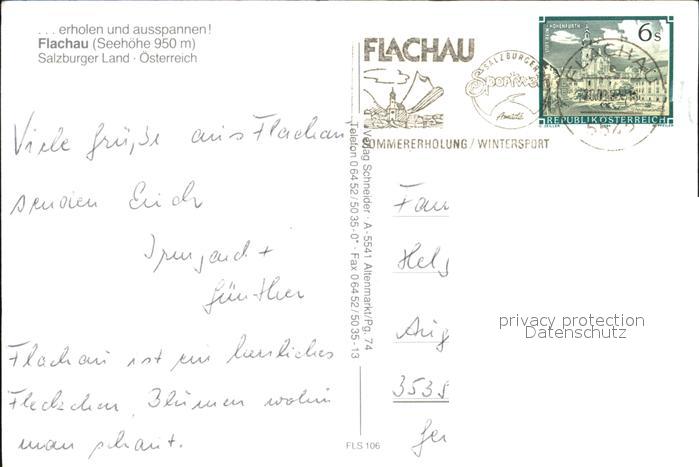 ... erholen und ausspannen!
Flachau (Seehöhe 950 m)
Salzburger Land · Österreich
Viele Grüße aus Flachau
senden Euch
Irmgard +
Günther
Flachau ist ein herrliches
Fleckchen, Blumen wohin
man schaut.
FLACHAU
SALZBURGER
Sportwelt
Amadé
SOMMERERHOLUNG / WINTERSPORT
HOHENFURTH
6s
REPUBLIK ÖSTERREICH
FLACHAU
5542
Verlag Schneider · A-5541 Altenmarkt/Pg. 74
Telefon 0 64 52 / 50 35-0* · Fax 0 64 52 / 50 35-13
Fam
Helg
3538
privacy protection
Datenschutz
FLS 106